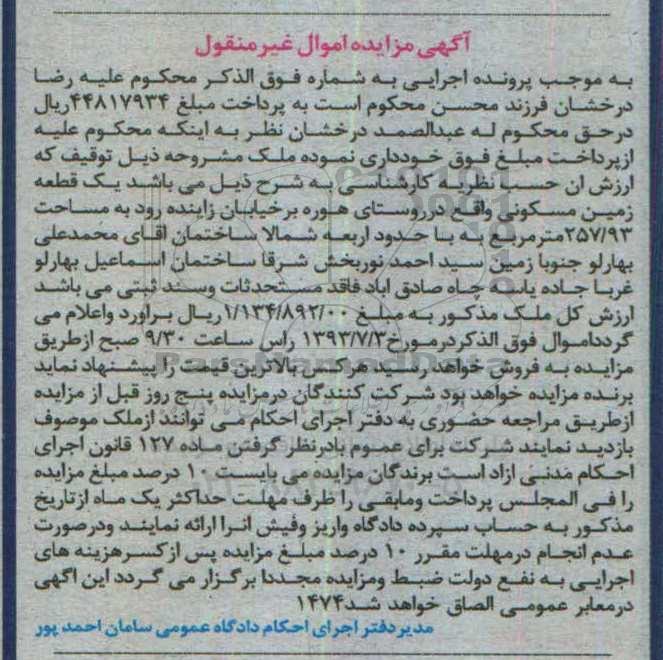 آگهی مزایده اموال غیر منقول
به موجب پرونده اجرایی به شماره فوق الذکر محکوم علیه رضا
درخشان فرزند محسن محکوم است به پرداخت مبلغ ۴۴۸۱۷۹۳۴ریال
درحق محکوم له عبدالصمد درخشان نظر به اینکه محکوم علیه
ازپرداخت مبلغ فوق خودداری نموده ملک مشروحه ذیل توقیف که
ارزش ان حسب نظریه کارشناسی به شرح ذیل می باشد یک قطعه
زمین مسکونی واقع درروستای هوره برخیابان زاینده رود به مساحت
۲۵۷/۹۳مترمربع به با حدود اربعه شمالا ساختمان اقای محمدعلی
بهارلو جنوبا زمین سید احمد نوربخش شرقا ساختمان اسماعیل بهارلو
غربا جاده یابه چاه صادق اباد فاقد مستحدثات وسند ثبتی می باشد
ارزش کل ملک مذکور به مبلغ ۱/۱۳۴/۸۹۲/۰۰ریال براورد واعلام می
گردداموال فوق الذکردرمورخ۱۳۹۳/۷/۳ راس ساعت ۹/۳۰ صبح ازطریق
مزایده به فروش خواهد رسید هرکس بالاترین قیمت را پیشنهاد نماید
برنده مزایده خواهد بود شرکت کنندگان درمزایده پنج روز قبل از مزایده
ازطریق مراجعه حضوری به دفتر اجرای احکام می توانند ازملک موصوف
بازدید نمایند شرکت برای عموم بادرنظر گرفتن ماده ۱۲۷ قانون اجرای
احکام مدنی ازاد است برندگان مزایده می بایست ۱۰ درصد مبلغ مزایده
را فی المجلس پرداخت ومابقی را ظرف مهلت حداکثر یک ماه ازتاریخ
مذکور به حساب سپرده دادگاه واریز وفیش انرا ارائه نمایند ودرصورت
عدم انجام درمهلت مقرر ۱۰ درصد مبلغ مزایده پس ازکسرهزینه های
اجرایی به نفع دولت ضبط ومزایده مجددا برگزار می گردد این اگهی
درمعابر عمومی الصاق خواهد شد۱۴۷۴
مدیر دفتر اجرای احکام دادگاه عمومی سامان احمد پور
ParsNamadData